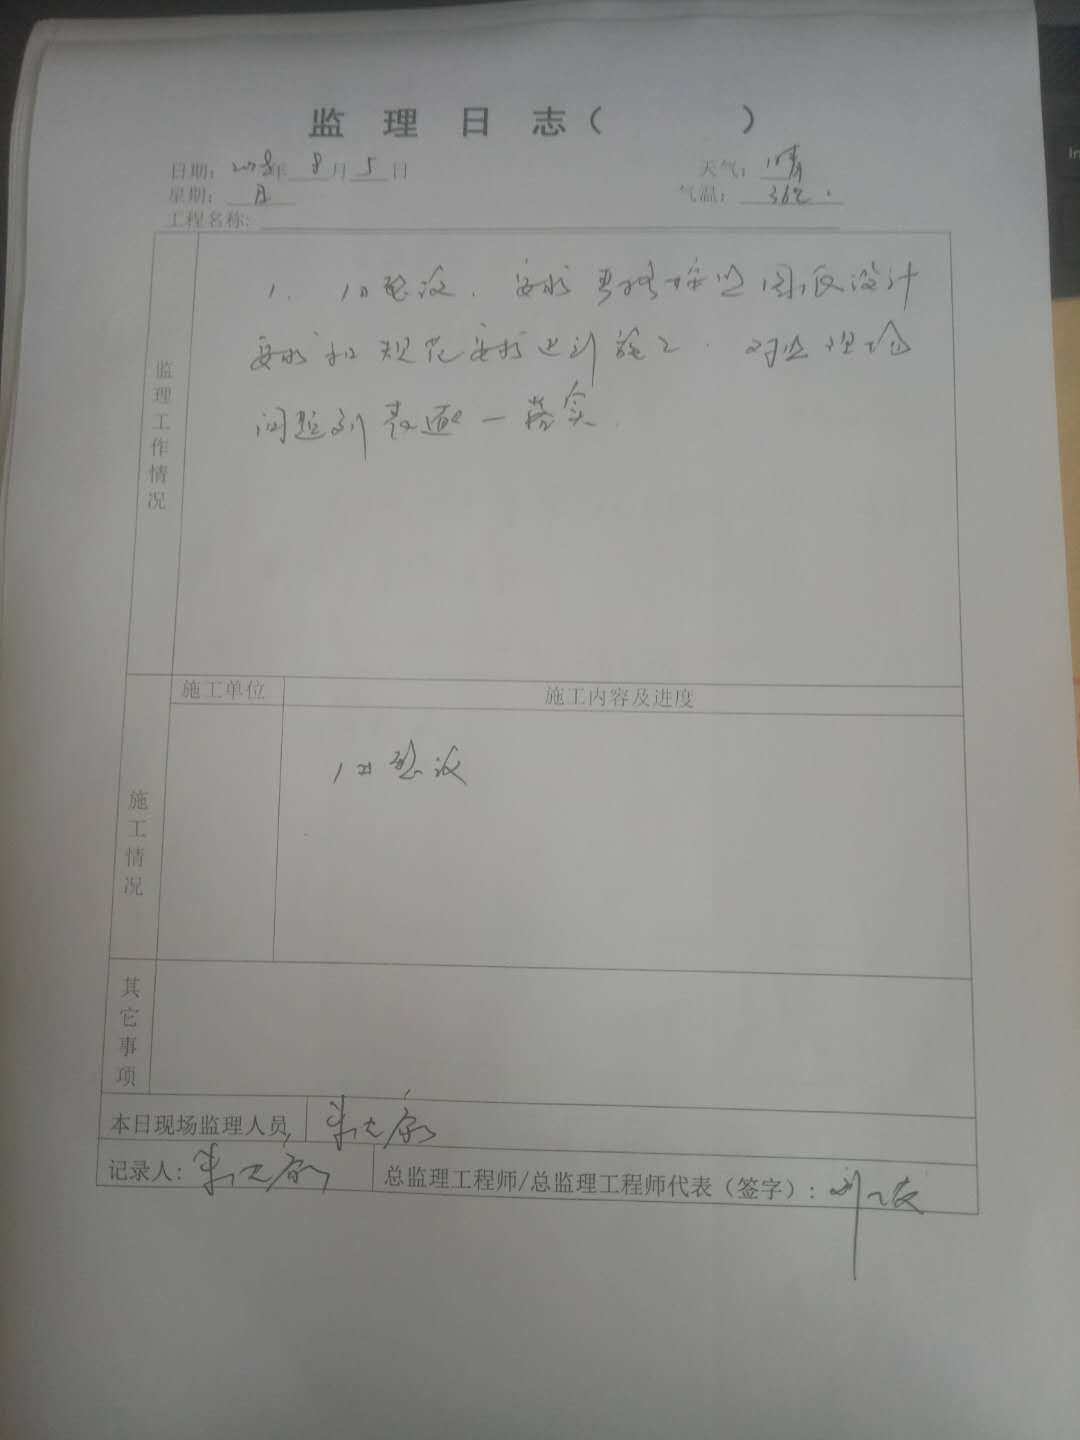 监 理 日 志（ ）
日期：2018年 8 月 5 日 天气：晴
星期：日 气温：36℃.
工程名称：
监理工作情况
1. 要求严格按照图纸设计
要求和规范要求进行施工. 对监理
问题列表逐一落实.
施工单位 施工内容及进度
施工情况
其它事项
本日现场监理人员
记录人： 总监理工程师/总监理工程师代表（签字）：